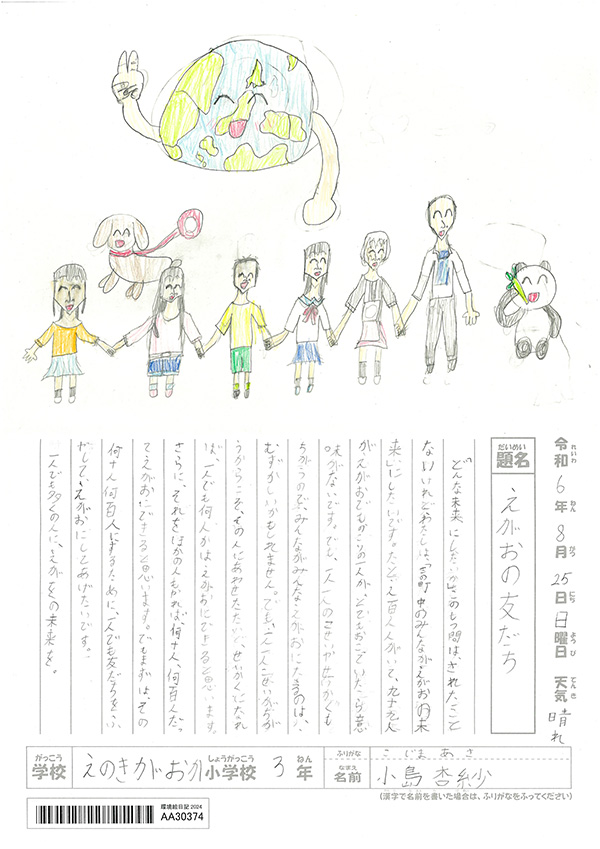 令和6年8月25日日曜日 天気晴れ
れいわ ねん がつ にち ようび てんき
だいめい
題名
えがおの友だち
どんな未来にしたいか。このしつ問は、されたこと
ないけれどわたしは、「町中のみんながえがおの未
来」にしたいです。たとえ百人がいて、九十九人
がえがおでものこりの一人が、とてもおこっていたら意
味がないです。でも、一人一人のせいかくも
ちがうので、みんながみんなえがおになるのは、
むずかしいかもしれません。でも、一人一人せいかくがち
がうからこそ、その人にあわせたたいせいかくになれ
ば、一人でも何人かはえがおにできると思います。
さらに、それをほかの人もやれば、何十人、何百人だっ
てえがおにできると思います。でもまずは、その
何十人何百人にするために、一人でも友だちをふ
やして、えがおにしてあげたいです。
一人でも多くの人に、えがおの未来を。
がっこう
学校
えのきがおか
しょうがっこう
小学校
3
ねん
年
ふりがな
こじま あさ
なまえ
名前
小島 杏紗
(漢字で名前を書いた場合は、ふりがなをふってください)
環境絵日記2024
AA30374